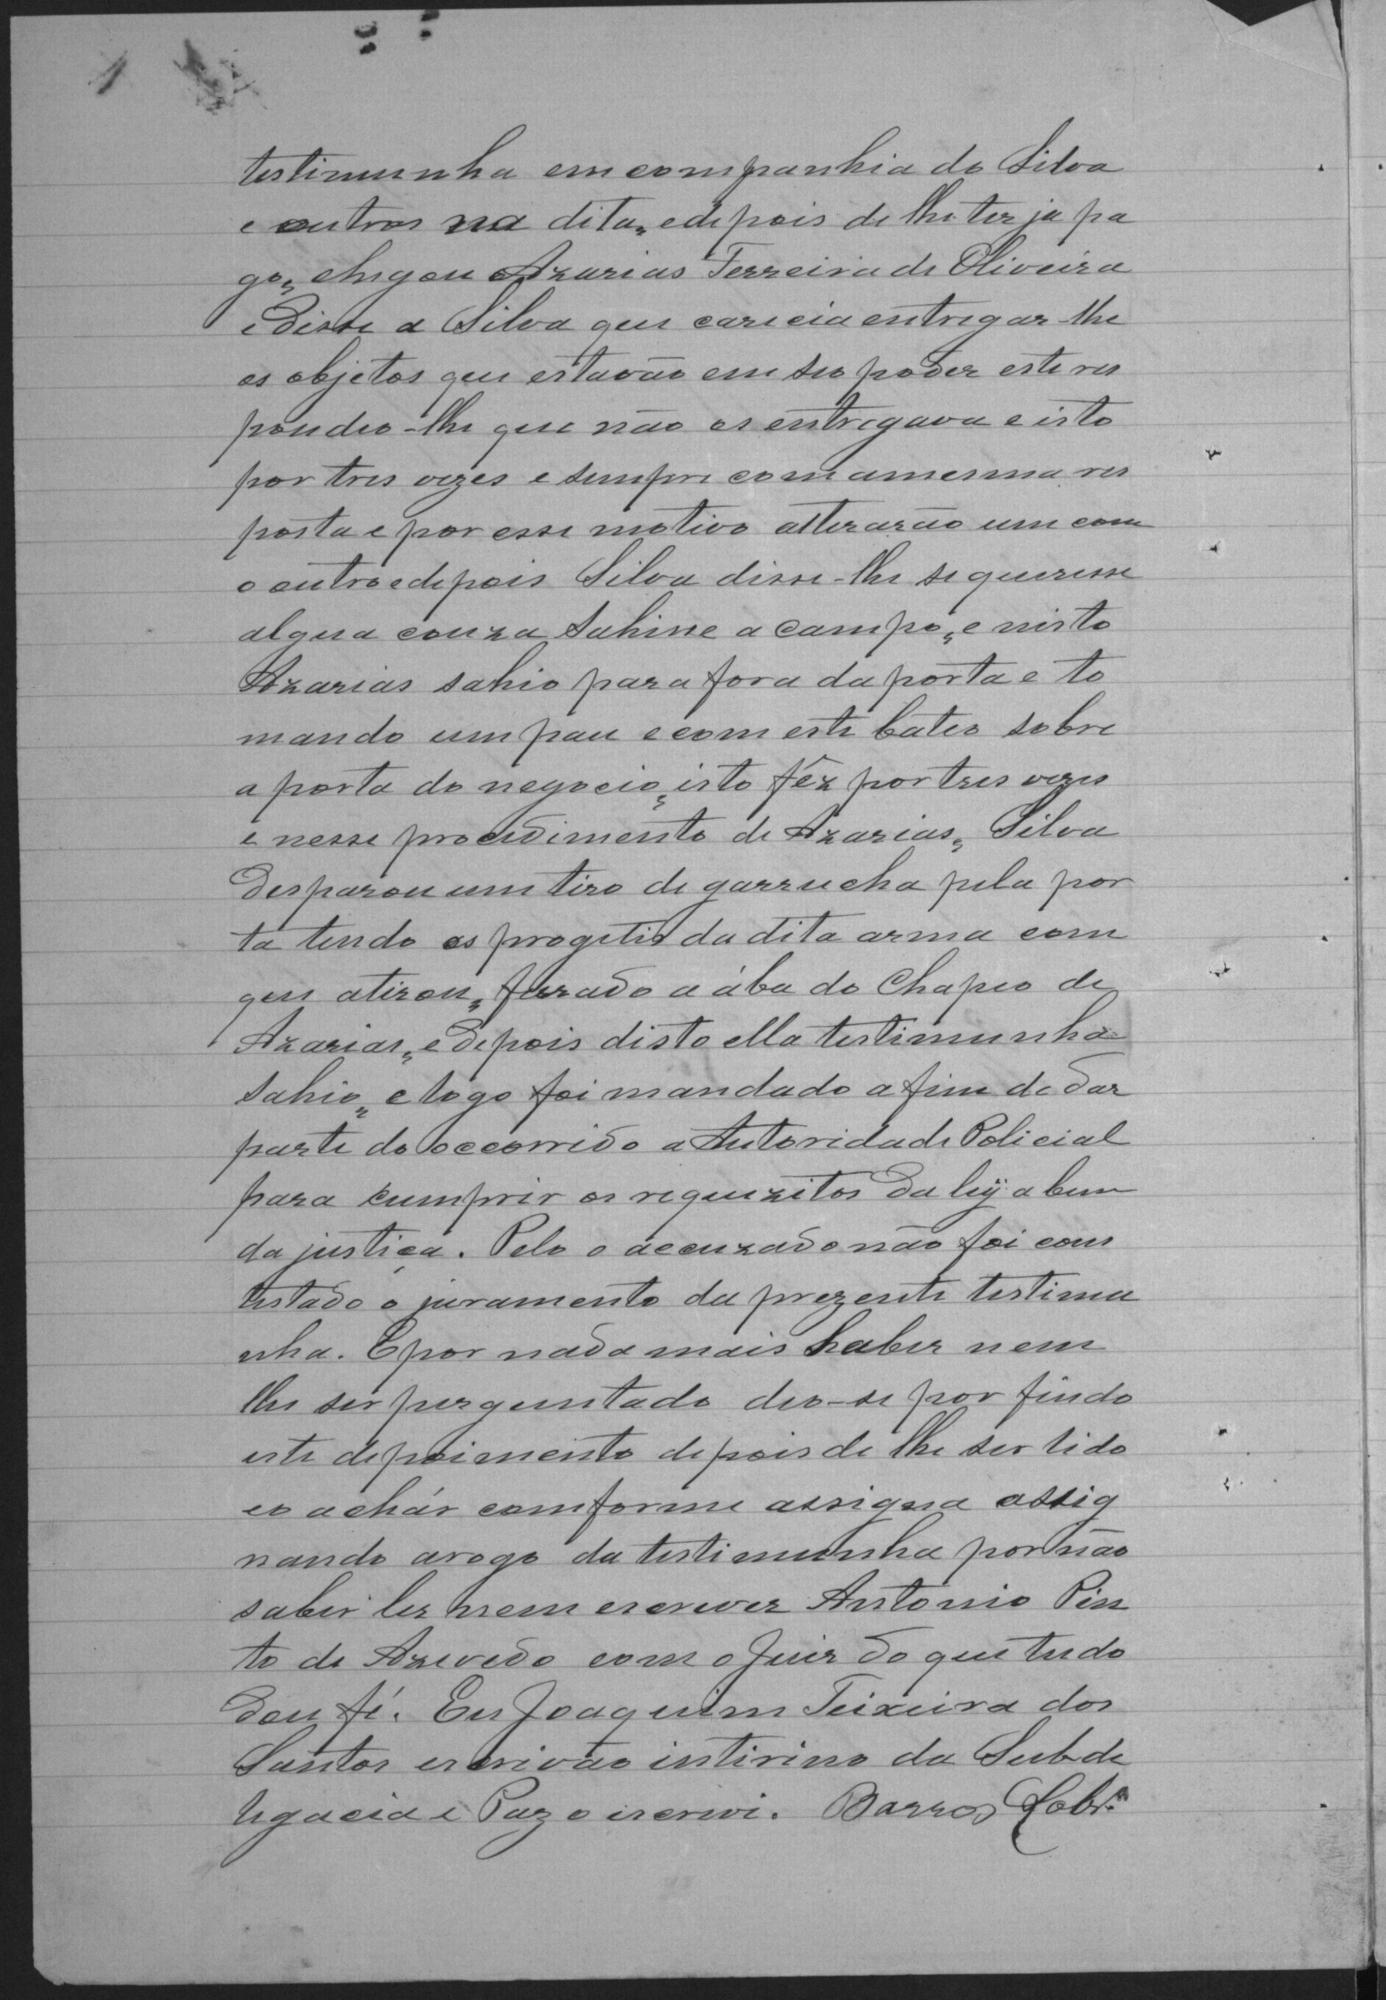 testimunha em companhia do Silva
e outros na dita, e depois de lhe ter ja pa
go, chegou Azarias Ferreira de Oliveira
e disse a Silva que carecia entregar-lhe
os objetos que estavão em seo poder este res
pondeo-lhe que não os entregava e isto
por tres vezes e sempre com a mesma res
posta e por esse motivo alterarão um com
o outro e depois Silva disse-lhe se queresse
algua couza sahisse a campo, e nisto
Azarias sahio para fora da porta e to
mando um pau e com este bateo sobre
a porta do negocio, isto fêz por tres vezes
e nesse procedimento de Azarias, Silva
desparou um tiro de garrucha pela por
ta tendo os progetis da dita arma com
que atirou, furado a ába do Chapeo de
Azarias, e depois disto ella testimunha
sahio, e logo foi mandado a fim de dar
parte do occorrido a Autoridade Policial
para cumprir os requizitos da leÿ a bem
da justiça. Pelo o accuzado não foi cons
testado o juramento da prezente testimu
nha. E por nada mais haber nem
lhe ser perguntado deo-se por findo
este depoimento depois de lhe ser lido
e o achár comforme assigna assig
nando arogo da testimunha por não
saber ler nem escrever Antonio Pin
to de Azevedo com o Juiz do que tudo
dou fé. Eu Joaquim Teixeira dos
Santos escrivão intirino da Subde
legacia e Paz o escrevi. Barros Cobrª